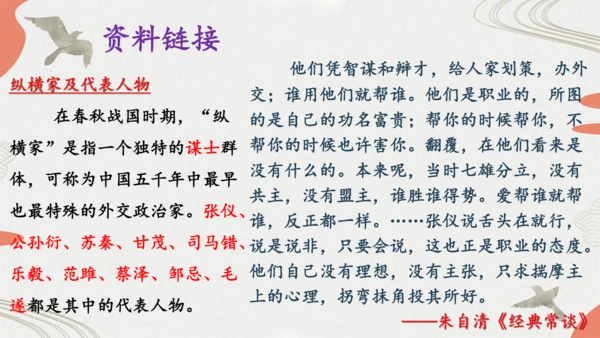 资料链接
纵横家及代表人物
在春秋战国时期，“纵
横家”是指一个独特的谋士群
体，可称为中国五千年中最早
也最特殊的外交政治家。张仪、
公孙衍、苏秦、甘茂、司马错、
乐毅、范雎、蔡泽、邹忌、毛
遂都是其中的代表人物。
他们凭智谋和辩才，给人家划策，办外
交；谁用他们就帮谁。他们是职业的，所图
的是自己的功名富贵；帮你的时候帮你，不
帮你的时候也许害你。翻覆，在他们看来是
没有什么的。本来呢，当时七雄分立，没有
共主，没有盟主，谁胜谁得势。爱帮谁就帮
谁，反正都一样。……张仪说舌头在就行，
说是说非，只要会说，这也正是职业的态度。
他们自己没有理想，没有主张，只求揣摩主
上的心理，拐弯抹角投其所好。
——朱自清《经典常谈》